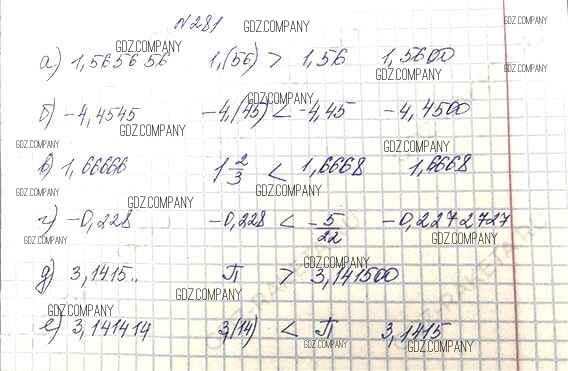 №281 GDZ.COMPANY
а) 1,565656 1,(56) > 1,56 1,5600
GDZ.COMPANY GDZ.COMPANY GDZ.COMPANY
б) -4,4545 -4,(45) < -4,45 -4,4500
GDZ.COMPANY GDZ.COMPANY
GDZ.COMPANY GDZ.COMPANY
в) 1,66666 1 2/3 < 1,6668 1,6668
GDZ.COMPANY GDZ.COMPANY
GDZ.COMPANY
г) -0,228 -0,228 < -5/22 -0,2272727
GDZ.COMPANY GDZ.COMPANY
д) 3,1415.. π > 3,141500
GDZ.COMPANY GDZ.COMPANY
GDZ.COMPANY
е) 3,141414 3,(14) < π 3,1415
GDZ.COMPANY GDZ.COMPANY